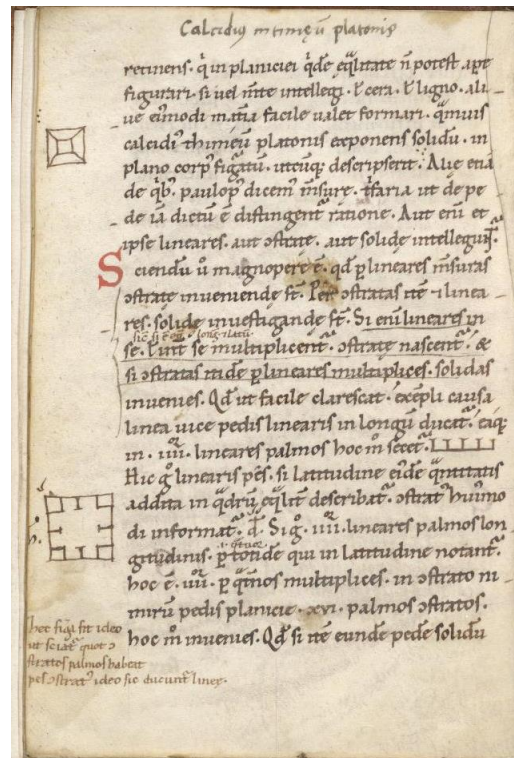 Calcidius in timeū platonis
retinens. q̇ in planiciei q̇dē eq̄litate n̄ potest apte
figurari. si uel m̄te intellegi. l̓ cera. l̓ ligno. ali
ue ei᷒modi mat̄ia facile ualet formari. q̄muis
calcidi᷒ thimeū platonis exponens solidū. in
plano corp᷒ fiḡatū. utcuq; descripserit. Aliē etiā
de q̇b᷒ paulop᷒ dicem᷒ m̄sure. t̓faria ut de pe
de iā dictū ē distingent᷒ ratione. Aut eni et
ipse lineares. aut ɔstrate. aut solide intellegunt᷒.
Sciendū u̓ magnopere ē. qd ꝑ lineares m̄suras
ɔstrate inueniende st̄. Per ɔstratas itē ⁊ linea
res. solide inuestigande st̄. Si eni lineares in
se. l̓ int̓ se multiplicent᷒. ɔstrate nascent᷒. &
si ɔstratas inde ꝑ lineares multiplices. solidas
inuenies. Qd ut facile clarescat. exempli causa
linea uice pedis linearis in longū ducat᷒. eaq;
in .iiii. lineares palmos hoc m̊ secet᷒.
Hic g̊ linearis pēs. si latitudine ei᷒dē q̄ntitatis
addita in q̄drū eq̄lit̓ describat᷒. ɔstrat᷒ hui᷒mo
di informat᷒. Si g̊ .iiii. lineares palmos lon
gitudinis. ꝑ totidē qui in latitudine notant᷒.
hoc ē .iiii. ꝑ q̄t̓nos multiplices. in ɔstrato ni
mirū pedis planicie .xvi. palmos ɔstratos.
hoc m̊ inuenies. Qd si itē eundē pedē solidū
hoc fiḡa fit ideo
ut sciat᷒ quot ɔ
stratos palmos habeat
pes ɔstrat᷒ ideo sic ducunt᷒ linee.